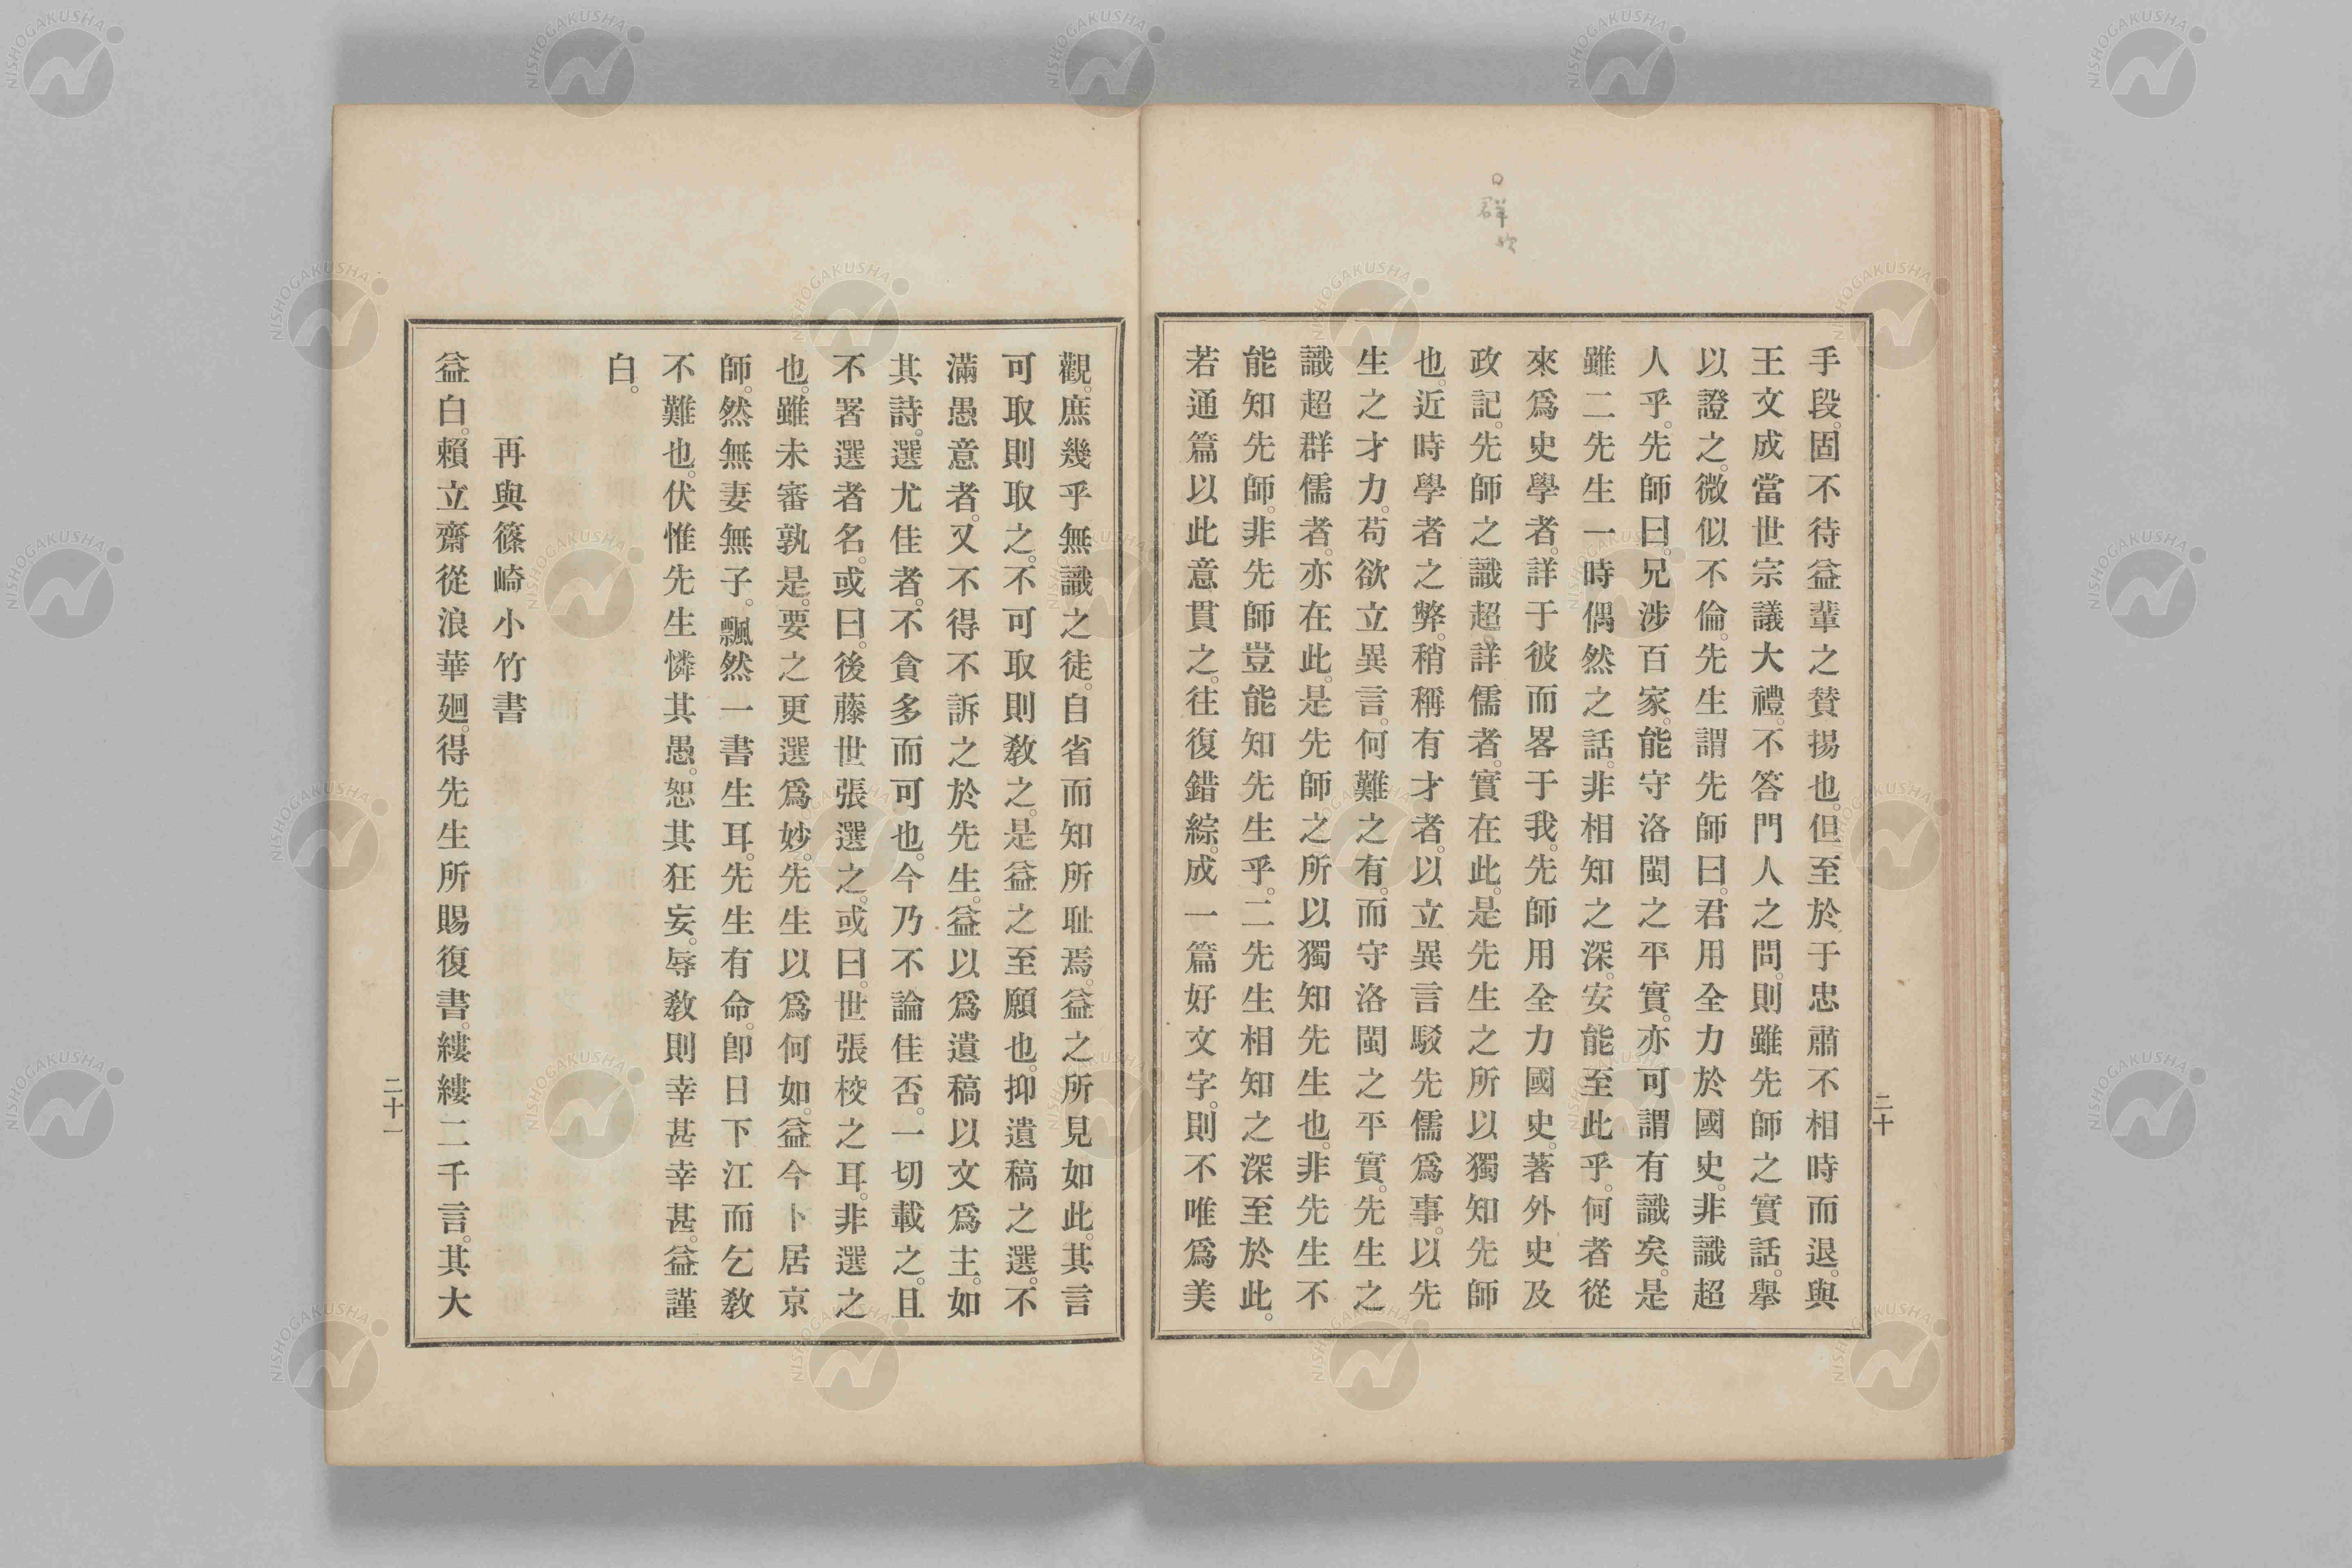 群
手段。固不待益輩之賛揚也。但至於于忠肅不相時而退。與
王文成當世宗議大禮。不答門人之問。則雖先師之實話。擧
以證之。微似不倫。先生謂先師曰。君用全力於國史。非識超
人乎。先師曰。兄涉百家。能守洛閩之平實。亦可謂有識矣。是
雖二先生一時偶然之話。非相知之深。安能至此乎。何者從
來爲史學者。詳于彼而畧于我。先師用全力國史。著外史及
政記。先師之識超詳儒者。實在此。是先生之所以獨知先師
也。近時學者之弊。稍稱有才者。以立異言駁先儒爲事。以先
生之才力。苟欲立異言。何難之有。而守洛閩之平實。先生之
識超群儒者。亦在此。是先師之所以獨知先生也。非先生不
能知先師。非先師豈能知先生乎。二先生相知之深至於此。
若通篇以此意貫之。往復錯綜。成一篇好文字。則不唯爲美
二十
觀。庶幾乎無識之徒。自省而知所耻焉。益之所見如此。其言
可取則取之。不可取則敎之。是益之至願也。抑遺稿之選。不
滿愚意者。又不得不訴之於先生。益以爲遺稿以文爲主。如
其詩。選尤佳者。不貪多而可也。今乃不論佳否。一切載之。且
不署選者名。或曰。後藤世張選之。或曰。世張校之耳。非選之
也。雖未審孰是。要之更選爲妙。先生以爲何如。益今卜居京
師。然無妻無子。飄然一書生耳。先生有命。卽日下江而乞敎
不難也。伏惟先生憐其愚。恕其狂妄。辱敎則幸甚幸甚。益謹
白。
再與篠崎小竹書
益白。賴立齋從浪華廻。得先生所賜復書。縷縷二千言。其大
二十一
NISHOGAKUSHA